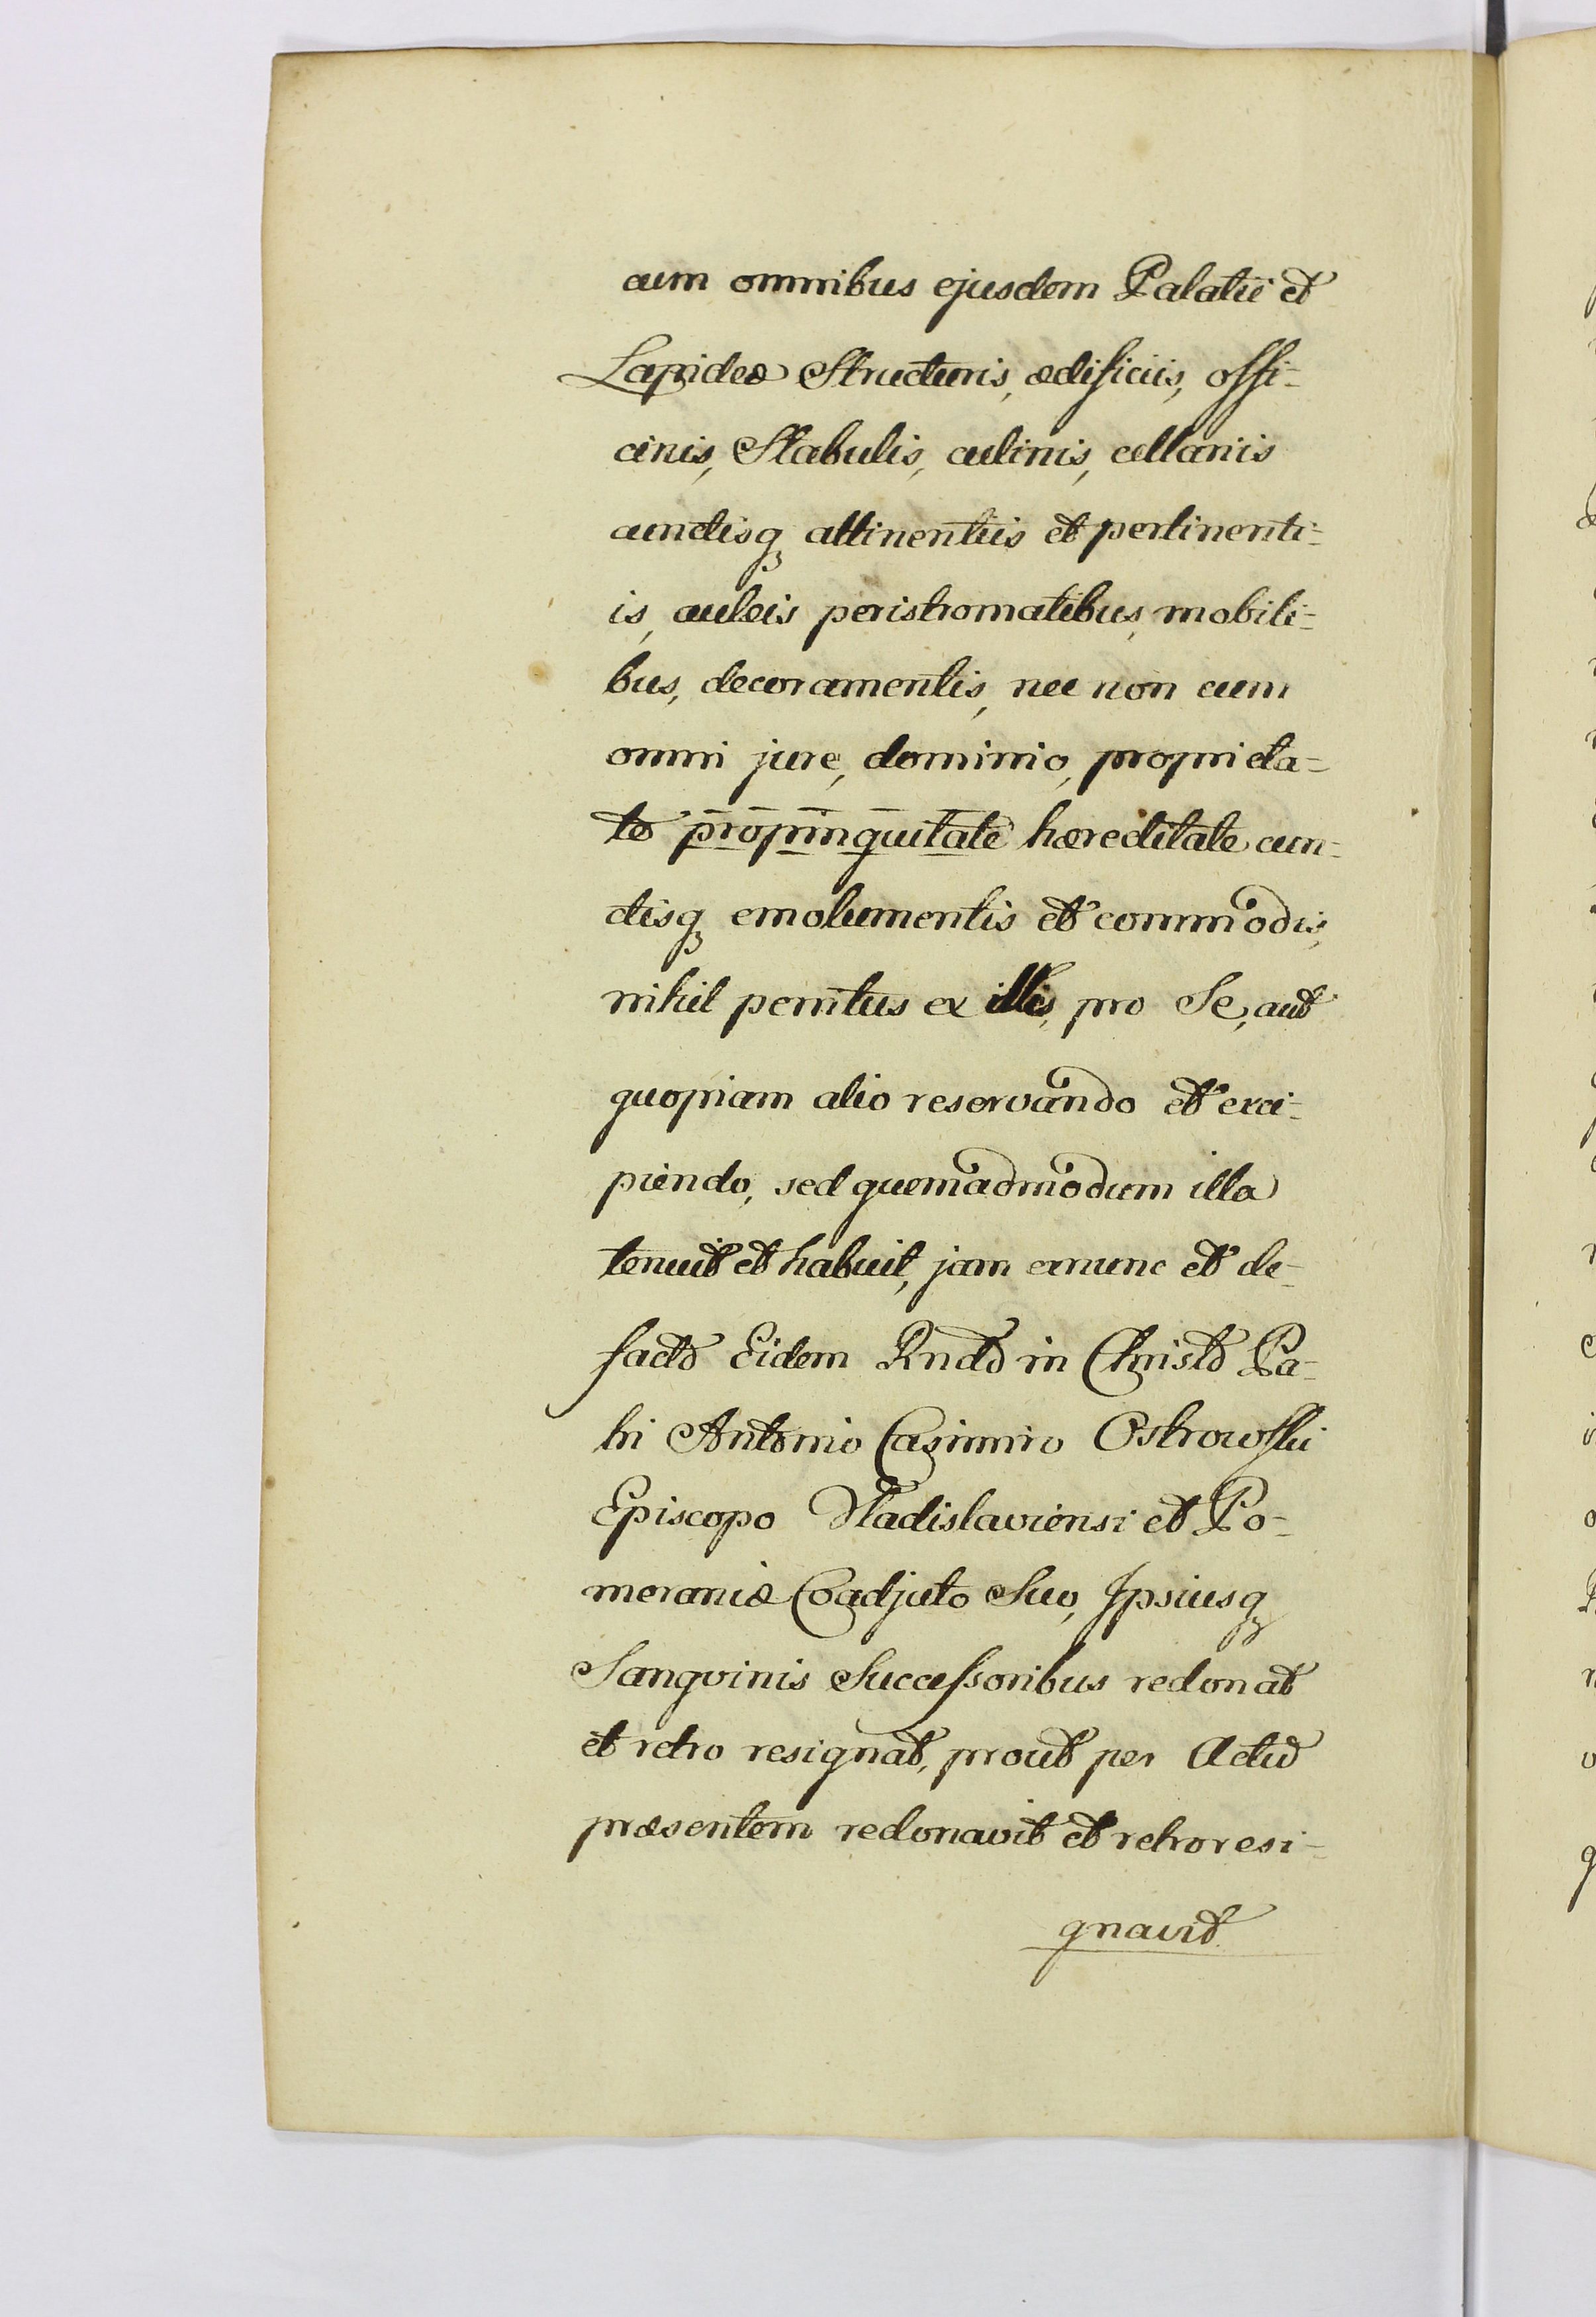 cum omnibus ejusdem Palatii et
Lapideæ Structuris, ædificiis, offi-
cinis, Stabulis, culinis, cellariis
cunctisq attinentiis et pertinenti-
is, auleis peristromatibus, mobili-
bus, decoramentis, nec non cum
omni jure, dominio, proprieta-
te propinquitate hæreditate cun-
ctisq emolumentis et commodis,
nihil penitus ex illis, pro Se, aut
quopiam alio reservando et exci-
piendo, sed quemadmodum illa
tenuit et habuit, jam exnunc et de-
facto Eidem Rndo in Christo Pa-
tri Antonio Casimiro Ostrowski
Episcopo Vladislaviensi et Po-
meraniæ Coadjuto Suo, Ipsiusq
Sangvinis Successoribus redonat
et retro resignat, prout per Actū
præsentem redonavit et retroresi-
gnavit